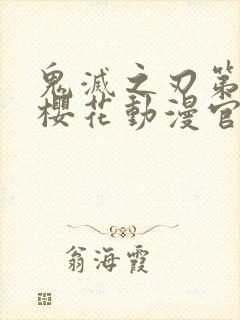 鬼滅之刃第
櫻花動漫官
翁海霞